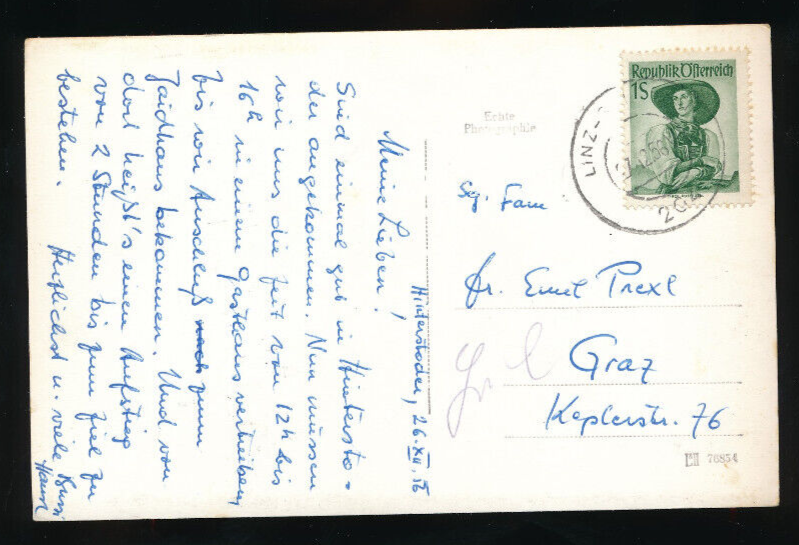 Hinterstoder, 26. XII. 56
Meine Lieben!
Sind einmal gut in Hintersto-
der angekommen. Nun müssen
wir uns die Zeit von 12h bis
16h in einem Gasthaus vertreiben,
bis wir Anschluß nach zum
Jaidhaus bekommen. Und von
dort heißt's einen Aufstieg
von 2 Stunden bis zum Ziel zu
bestehen. Herzlichst u. viele Bussi
Hansl
Echte
Photographie
Republik Österreich
1S
LINZ
Fam
Dr. Emil Prexl
Graz
Keplerstr. 76
76854